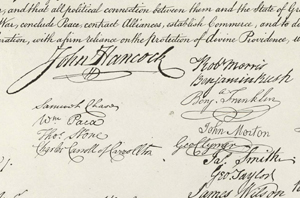 and that all political connection between them and the State of Gr
War, conclude Peace, contract Alliances, establish Commerce, and to do
ration, with a firm reliance on the Protection of divine Providence, w
John Hancock
Robt Morris
Benjamin Rush
Benj. Franklin
Samuel Chase
Wm Paca
Thos. Stone
Charles Carroll of Carrollton
John Morton
Geo Clymer
Jas. Smith
Geo. Taylor
James Wilson